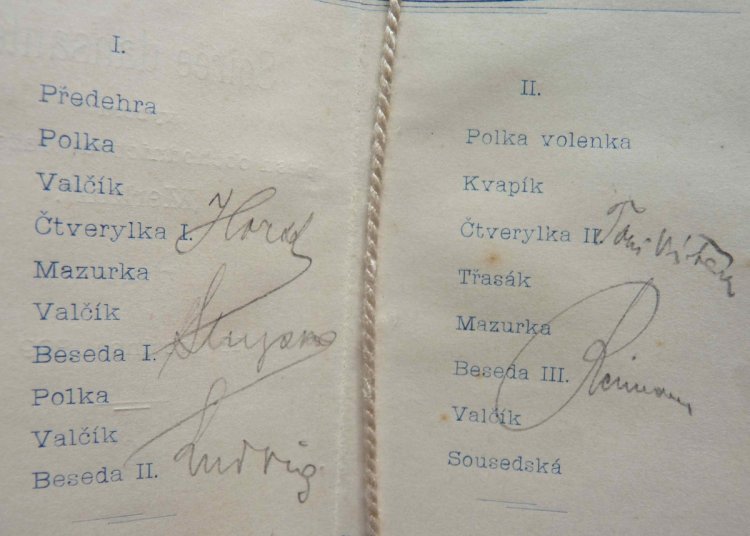 I.
Předehra
Polka
Valčík
Čtverylka I.
Mazurka
Valčík
Beseda I.
Polka
Valčík
Beseda II. Ludvig
II.
Polka volenka
Kvapík
Čtverylka II.
Třasák
Mazurka
Beseda III. Reimann
Valčík
Sousedská